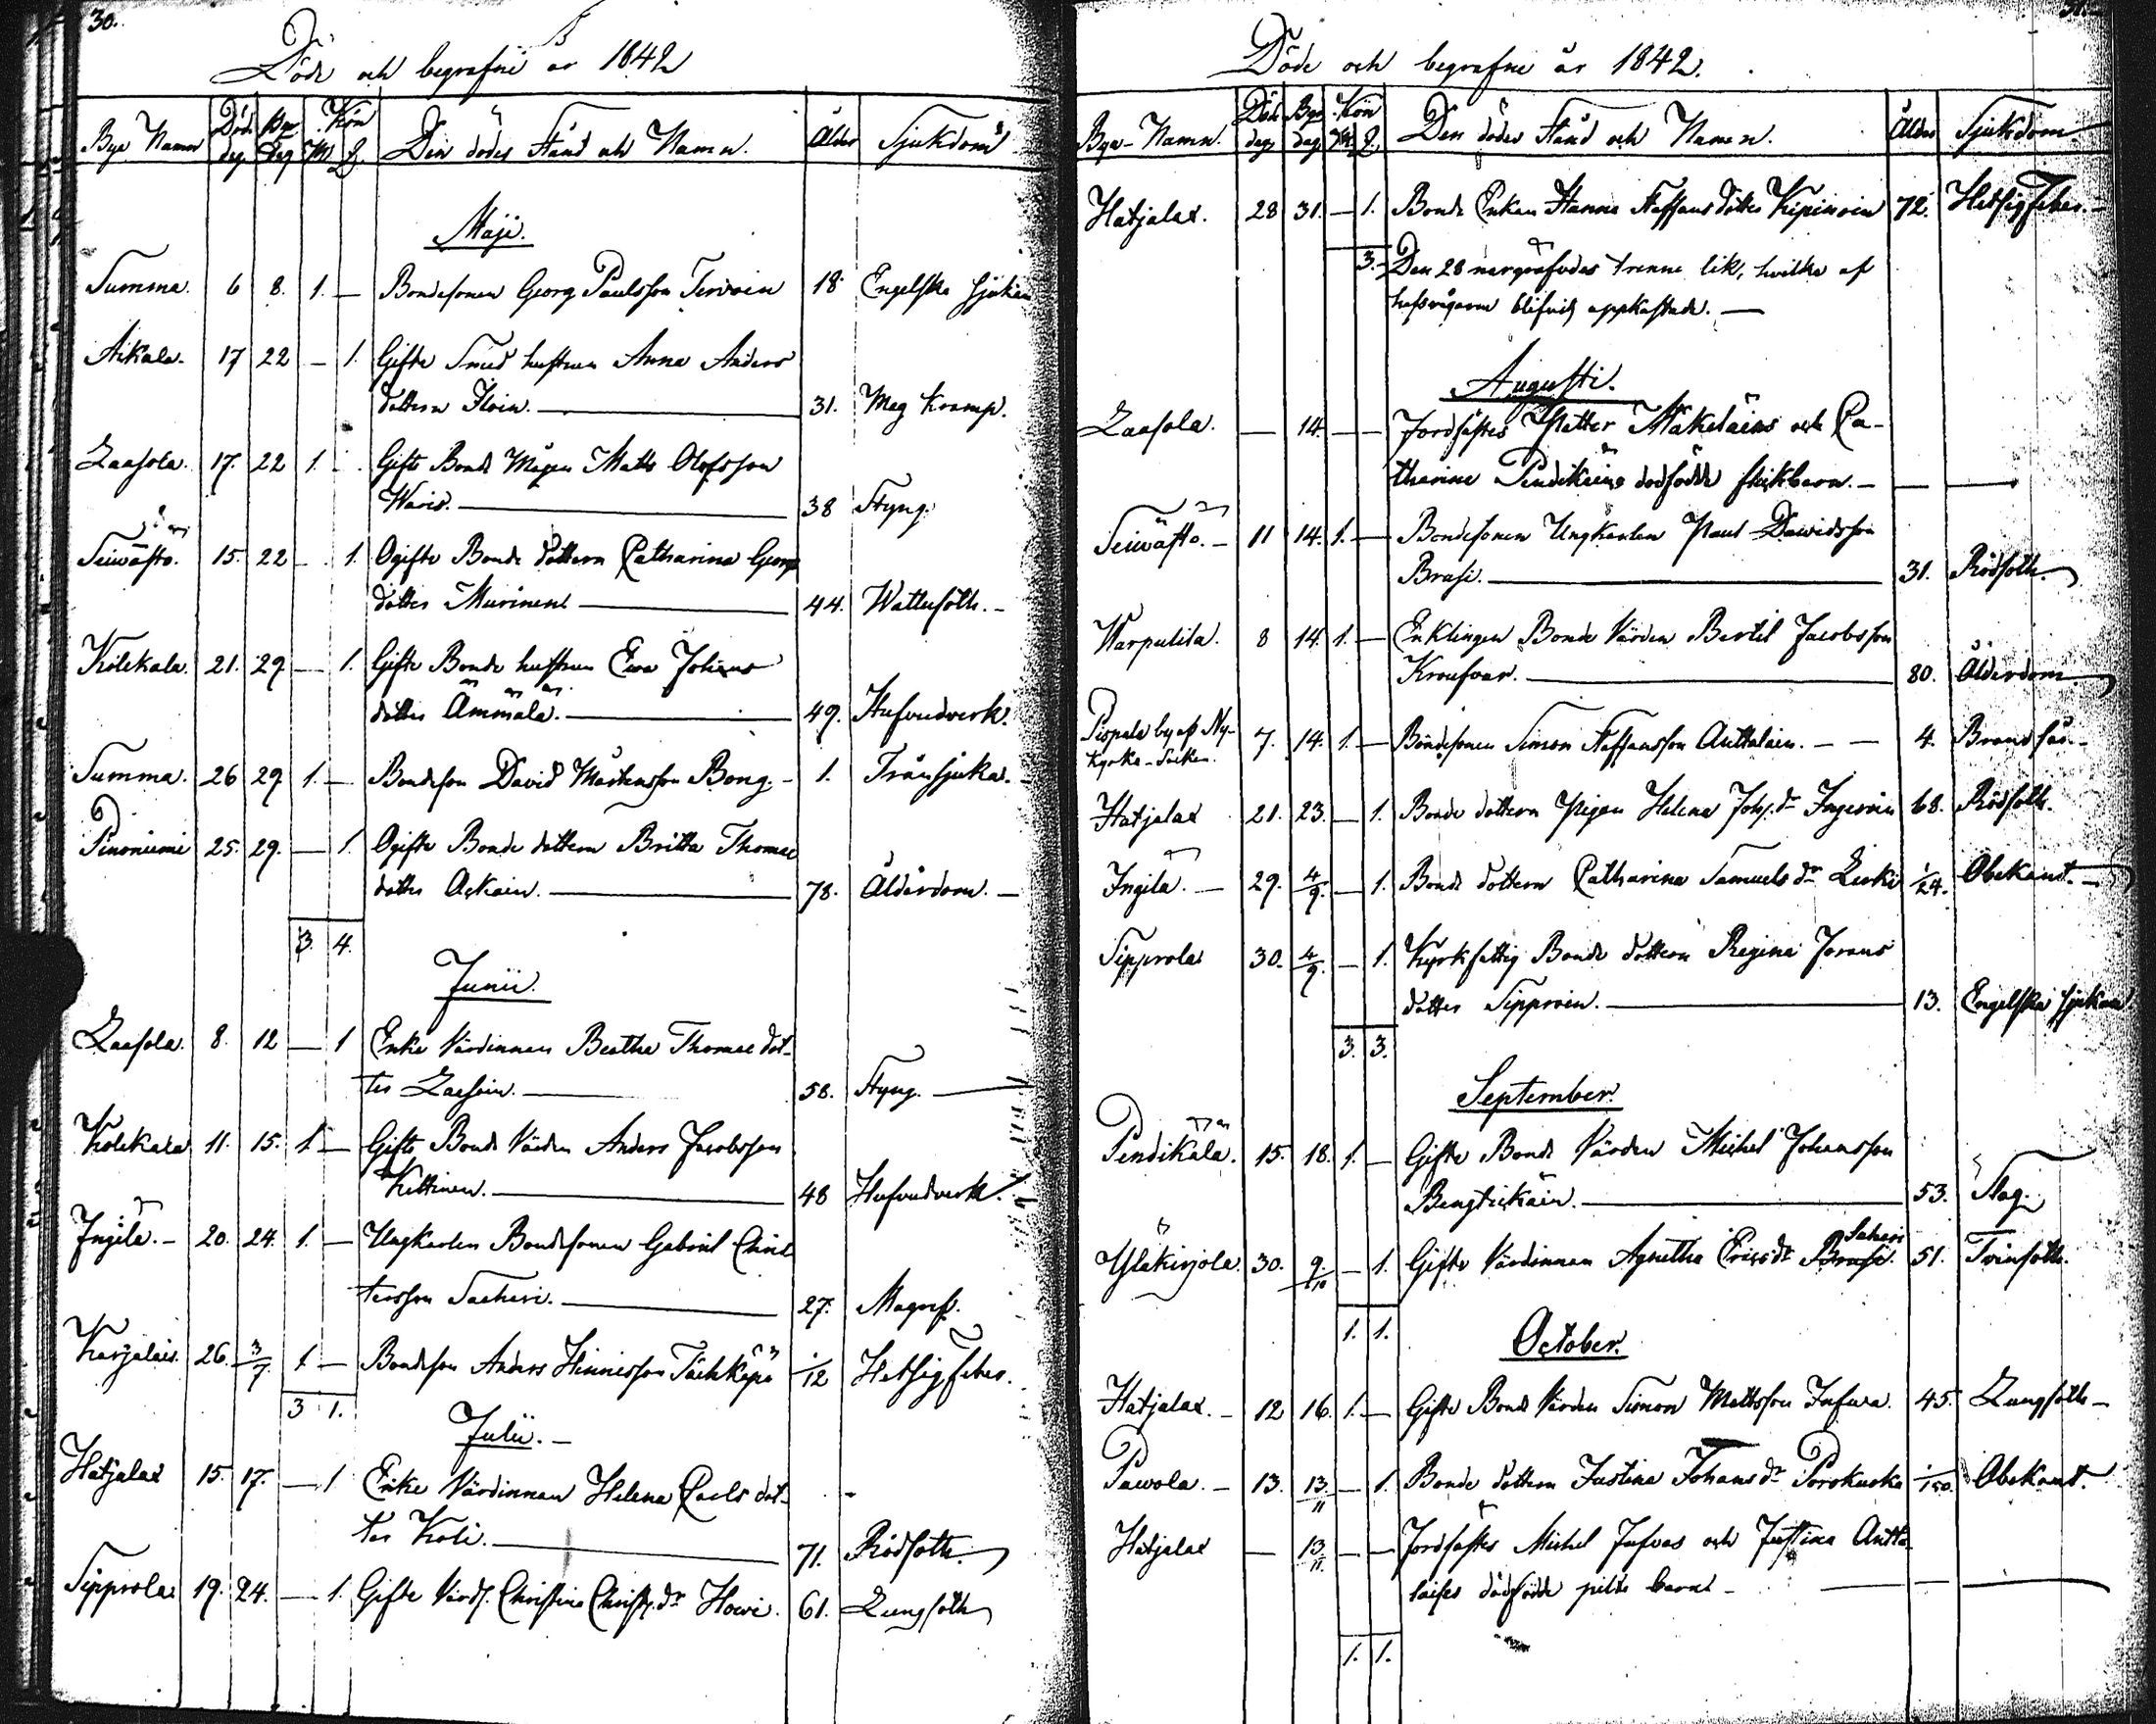 30.
Döde och begrafne år 1842
Bya Namn Döds dag Begr dag Kön M. Q. Den dödes Stånd och Namn. Ålder Sjukdom
Maji.
Summa. 6 8. 1. — Bondesonen Georg Paulsson Tervoin 18. Engelska sjukan
Aikala. 17 22 — 1. Gifte Smed hustrun Anna Anders
dottern Iloin. — 31. Mag kramp.
Laasola. 17. 22 1. Gifte Bonde Mågen Matts Olofsson
Waris. — 38 Styng.
Seiwästö. 15. 22 — 1. Ogifte Bonde dottern Catharina Georg
dotter Murinen. — 44. Wattusoth. —
Kölekala. 21. 29 — 1. Gifte Bonde hustrun Ewa Johans
dotter Ämmälä. — 49. Hufvudverk.
Summa. 26 29 1. — Bondeson David Mårtensson Bong. — 1. Trånsjuka. —
Pinoniemi 25. 29. — 1. Ogifte Bonde dottern Britta Thomae
dotter Ackain. — 78. Ålderdom. —
3. 4.
Junii.
Laasola. 8. 12 — 1 Enke Värdinnan Beatha Thomae dot-
ter Laasoin. — 58. Styng. —
Kölekala 11. 15. 1. — Gifte Bonde Värden Anders Jacobsson
Kettinen. — 48 Hufvudverk.
Ingila. — 20. 24. 1. — Ungkarlen Bondesonen Gabriel Chris
tersson Sacheri. — 27. Magref.
Karjalais. 26. 3/7. 1 — Bondeson Anders Hinricsson Täehkäpä 1/12 Hetsig feber.
3 1.
Julii. —
Hatjalax 15. 17. — 1 Enke Värdinnan Helena Paels dot-
ter Koli. — 71. Rödsoth.
Sipprola 19. 24. — 1. Gifte Värdi. Christina Christ. dr Howi. 61. Lungsoth
Döde och begrafne år 1842.
Bya-Namn. Döds dag Begr dag Kön M. Q. Den dödes Stånd och Namn. Ålder Sjukdom
Hatjalax. 28 31. — 1. Bonde Enkan Hanna Staffans dotter Kipinoin 72. Hetsig feber. —
3. — Den 28 nergräfvdes trenne lik, hvilka af
hafsvågorna blifvit uppkastade. —
Augusti.
Laasola. — 14. — — Jordfästes Matter Mäkeläins och Ca-
tharina Pendikäins dödfödda flickbarn. — — —
Seiwästö. — 11 14. 1. — Bondesonen Ungkarlen Paul Dawidsson
Brasi. — 31. Rödsoth.
Warpulila. 8 14. 1. — Enklingen Bonde Värden Bertil Jacobsson
Kroufvar. — 80. Ålderdom.
Pispala by af Ny-
Kyrka-Socken. 7. 14. 1. — Bondesonen Simon Staffansson Anttalain. — — 4. Brandsår. —
Hatjalax 21. 23. — 1. Bonde dottern Pigan Helena Joh. dr Ingeroin 68. Rödsoth.
Ingila. — 29. 4/9. — 1. Bonde dottern Catharina Samuels dr Leski 1/24. Obekant. —
Sipprola 30. 4/9. — 1. Kyrkfattig Bonde dottern Regina Jörans
dotter Sipproin. — 13. Engelska sjukan
3. 3.
September.
Pendikälä. 15. 18. 1. — Gifte Bonde Värden Michel Johansson
Bengtickäin. — 53. Slag.
Yläkirjola. 30. 9./10 — 1. Gifte Värdinnan Agnetha Ericsdr Brasi. Sakari 51. Tvinsoth.
1. 1.
October.
Hatjalax. — 12 16. 1. — Gifte Bonde Värden Simon Mattsson Jufwa. 45. Lungsoth —
Pawola. — 13. 13./11 — 1. Bonde dottern Justina Johans dr Porokuoka 1/150. Obekant.
Hatjalax — 13./11. — — Jordfästes Michel Jufvas och Justina Antta-
laises dödfödde pilte barn. — — —
1. 1.